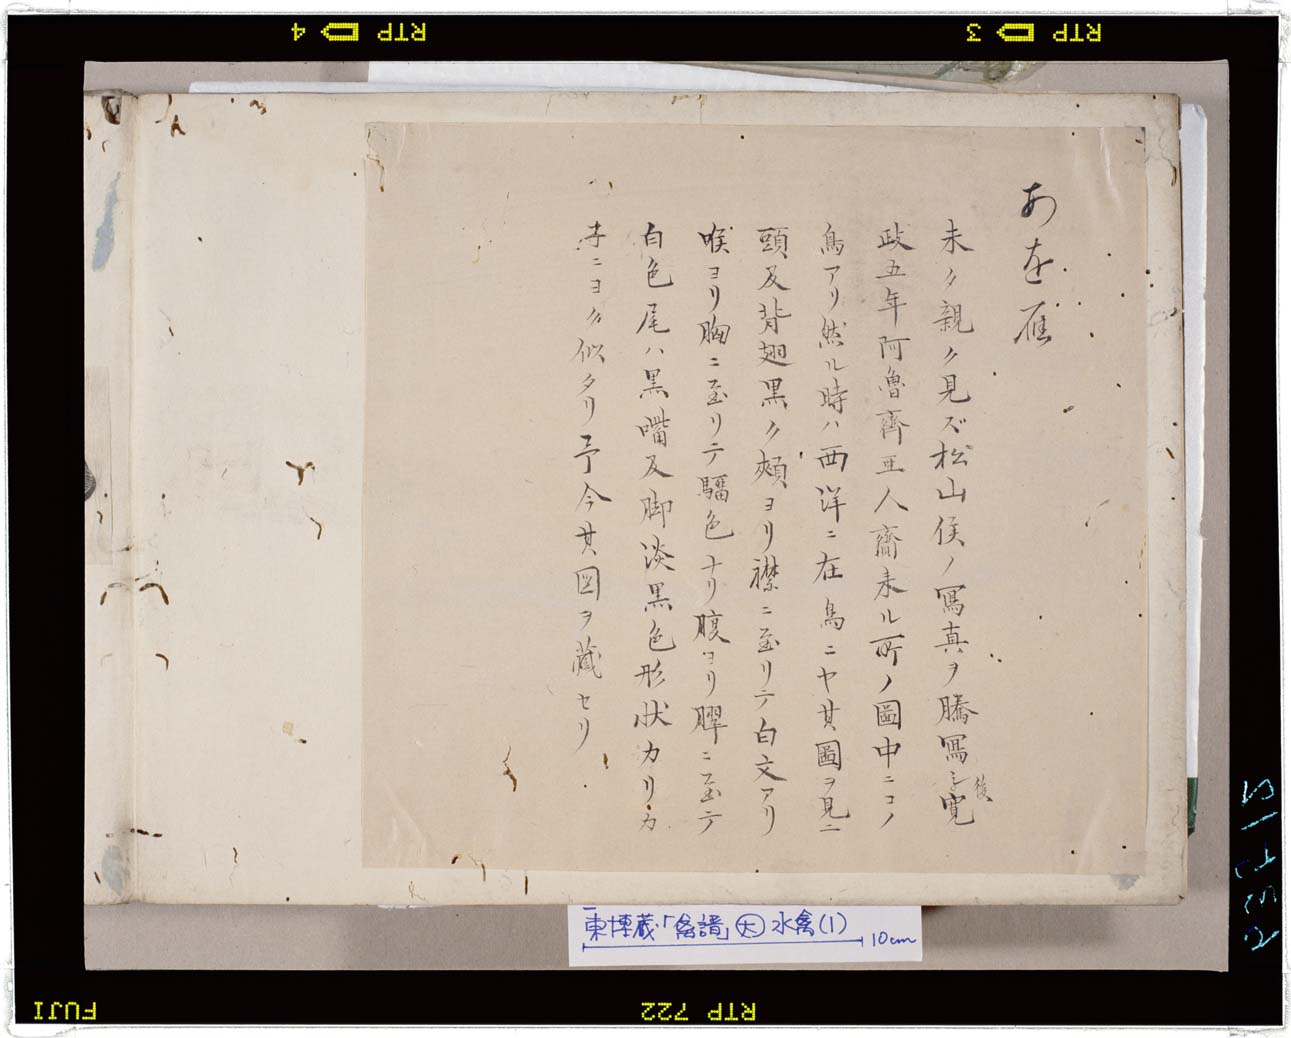 あを雁
未タ親ク見ズ松山侯ノ寫真ヲ騰寫ス寛
後
政五年阿魯齊亜人齎来ル所ノ圖中ニコノ
鳥アリ然ル時ハ西洋ニ在鳥ニヤ其圖ヲ見ニ
頭及背翅黒ク頰ヨリ襟ニ至リテ白文アリ
喉ヨリ胸ニ至リテ騮色ナリ腹ヨリ臎ニ至テ
白色尾ハ黒嘴及脚淡黒色形状カリカ
子ニヨク似タリ予今其図ヲ蔵セリ
東博蔵「禽譜」大 水禽(1)
10cm
RTP 4
RTP 3
FUJI
RTP 722